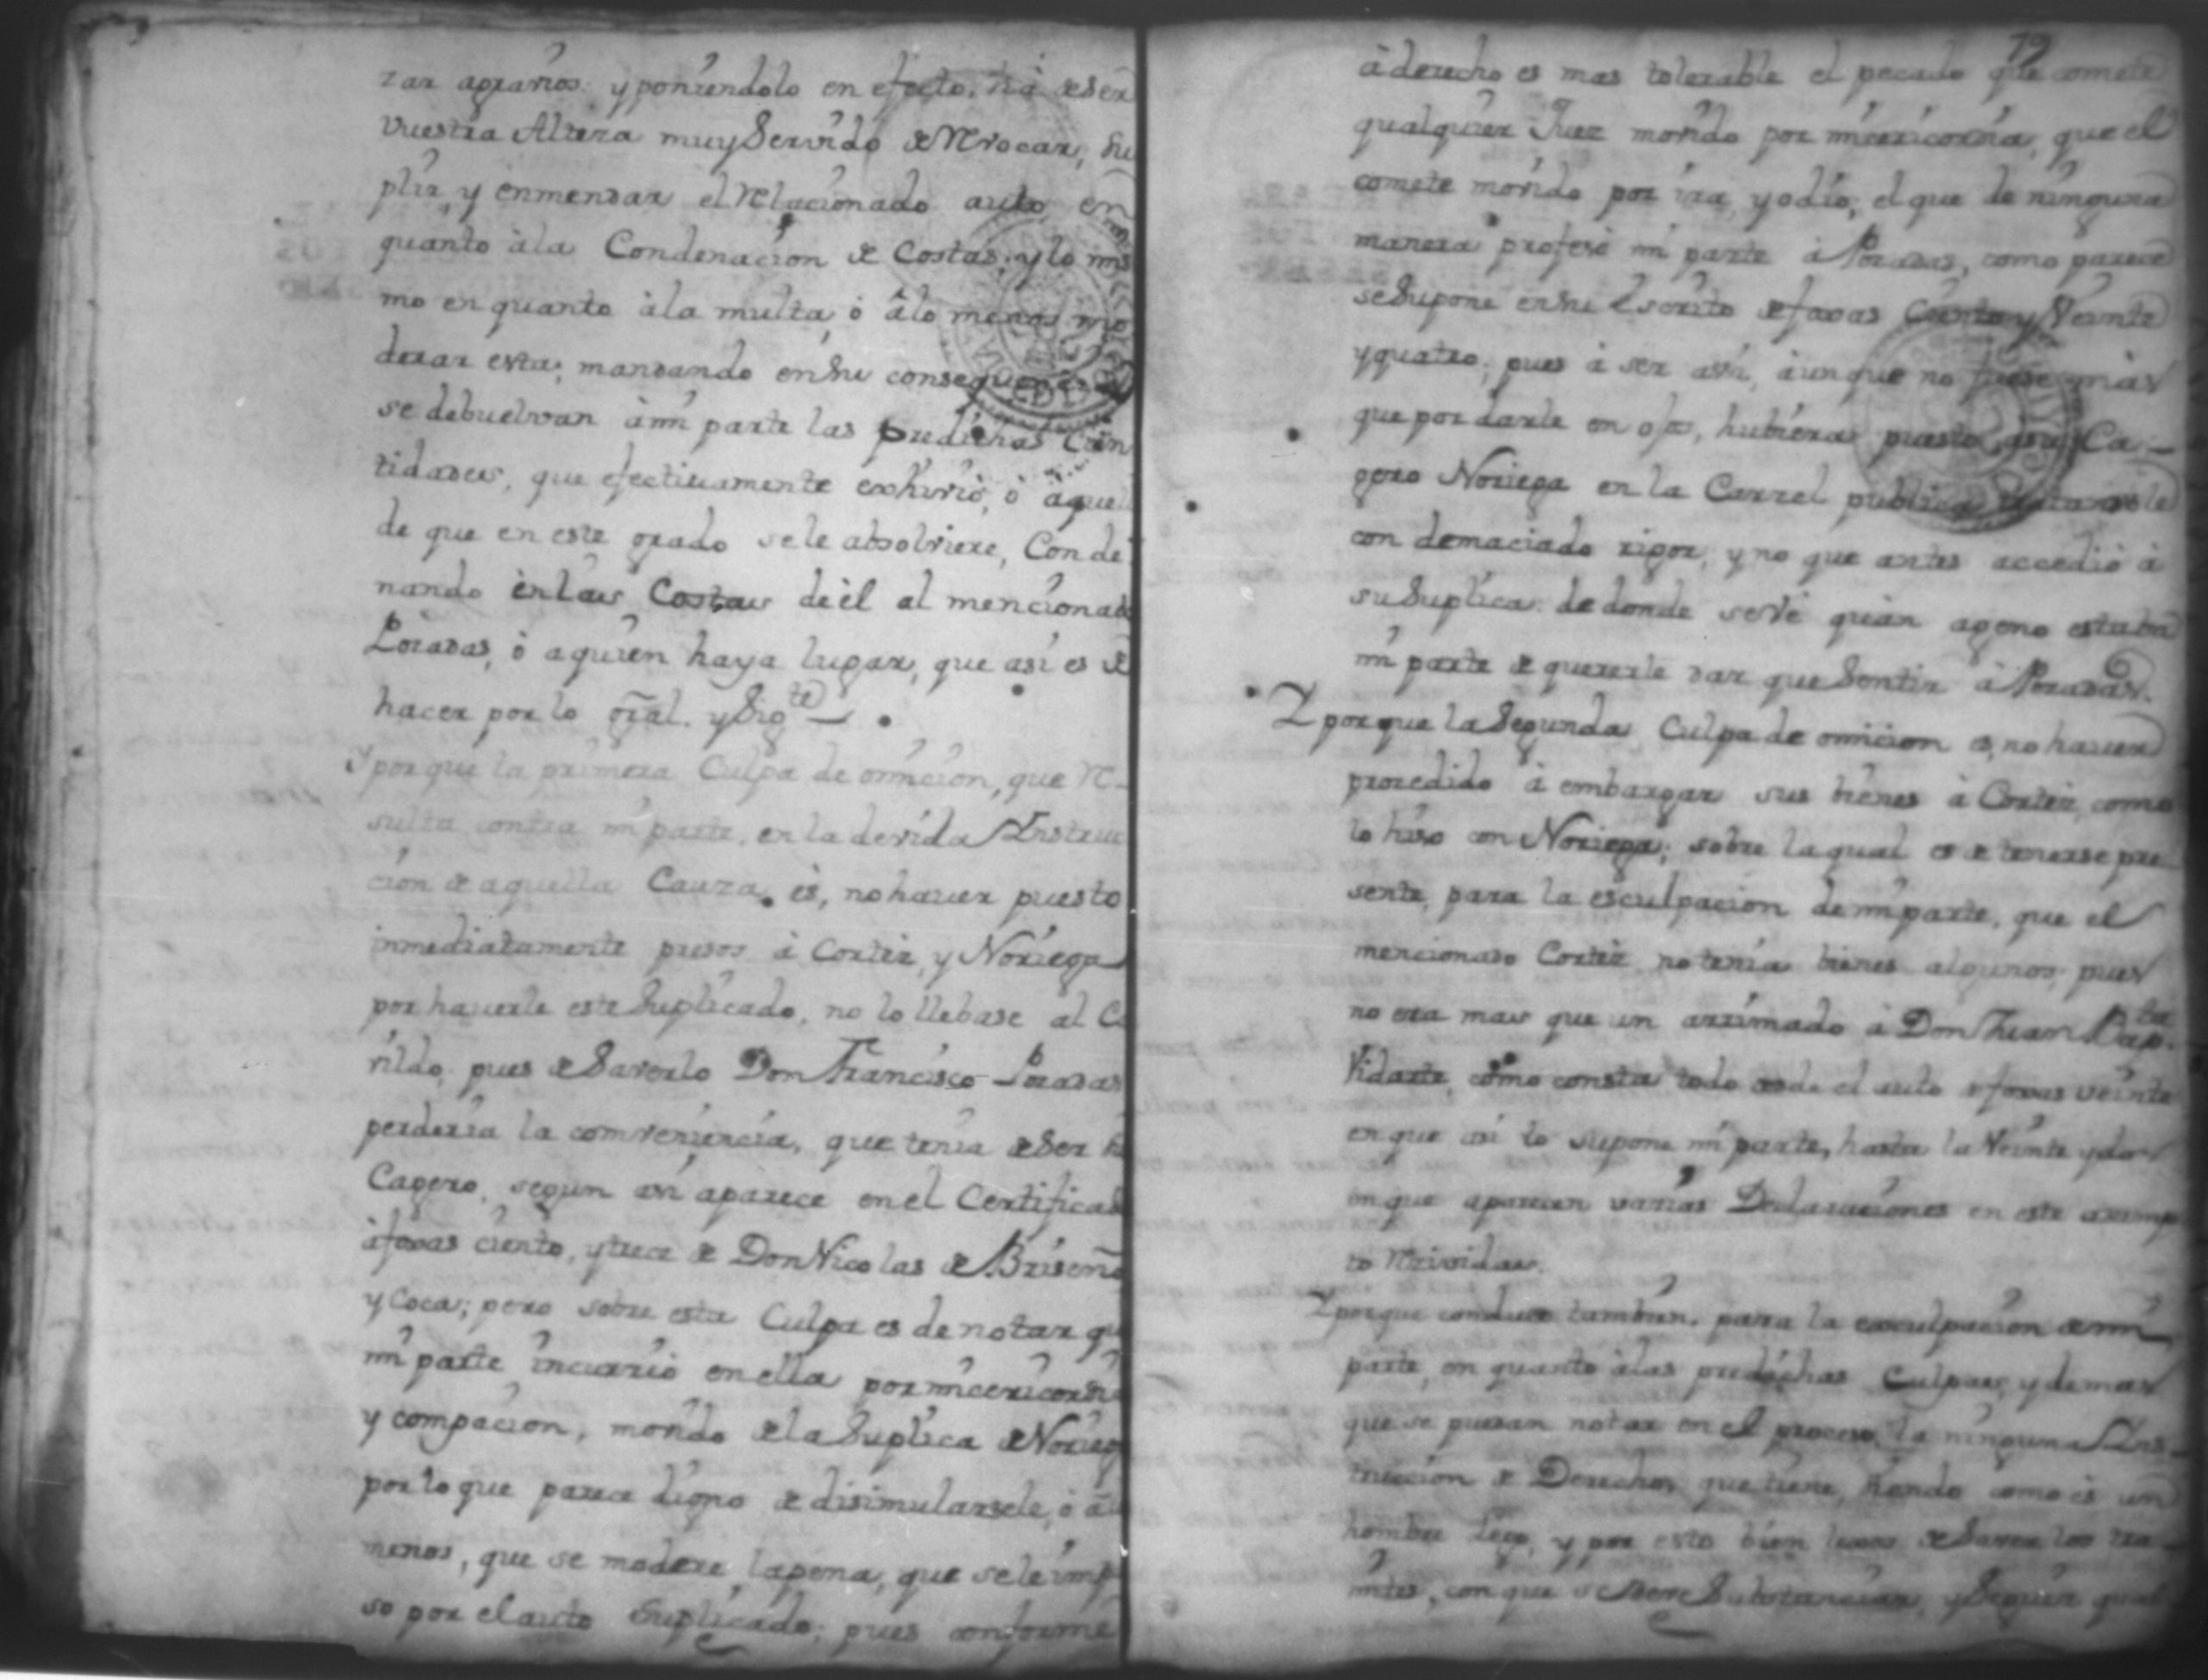 zar agravios: y poniendolo en efecto, ha de ser
Vuestra Alteza muy Servido de Revocar, Su
plir, y enmendar el Relacionado auto en
quanto à la Condenacion de Costas; y lo mis
mo en quanto à la multa, ò à lo menos mo
derar esta; mandando en Su consequencia
se debuelvan à mi parte las predichas Can
tidades, que efectivamente exhivió, ò aquel
de que en este grado se le absolviere, Conde
nando èn las Costas de èl al mencionado
Posadas, ò a quien haya lugar, que asi es de
hacer por lo gral. y Sigte
Y porque la primera Culpa de omicion, que re
sulta contra mi parte, en la devida Instruc
cion de aquella Cauza, és, no haver puesto
inmediatamente presos à Cortez, y Noriega
por haverle este Suplicado, no lo llebase al Ca
vildo, pues de Saverlo Don Francisco Posadas
perderia la comveniencia, que tenia de Ser Su
Cagero, segun asi aparece en el Certificado
à foxas ciento, y trece de Don Nicolas de Briseño
y Coca; pero sobre esta Culpa es de notar que
mi parte incurrió en ella por micericordia
y compacion, movido de la Suplica de Noriega
por lo que parece digno de disimularsele, ò à lo
menos, que se modere la pena, que se le impu
so por el auto Suplicado; pues conforme
79
à derecho es mas tolerable el pecado que comete
qualquier Juez movido por micericordia, que el
comete movido por ira, y odio; el que de ninguna
manera profesó mi parte à Posadas, como parece
se Supone en Su Escrito de foxas Ciento y Veinte
y quatro; pues à ser asi, àunque no fuese mas
que por darle en ojos, hubiera puesto à su Ca-
gero Noriega en la Carzel publica tratandole
con demaciado rigor, y no que antes accedió à
su Suplica: de donde se Vé quàn ageno estaba
mi parte de quererle dar que Sentir à Posadas.
Y porque la Segunda Culpa de omicion es, no haver
procedido à embargar sus bienes à Cortez, como
lo hiso con Noriega; sobre la qual es de tenerse pre
sente, para la esculpacion de mi parte, que el
mencionado Cortez no tenia bienes algunos; pues
no era mas que un arrimado à Don Juan Bapta.
Vidarte, como consta todo desde el auto de foxas veinte
en que asi lo supone mi parte, hasta la Veinte y dos
en que aparecen varias Declaraciones en este asump
to recividas.
Y porque conduce tambien, para la exculpacion de mi
parte, en quanto à las predichas Culpas, y demas
que se puedan notar en el proceso, la ninguna Ins-
truccion de Derecho, que tiene, siendo como es un
hombre lego, y por esto bien lexos de Saver los tra-
mites, con que se deve Substanciar, y Seguir qual